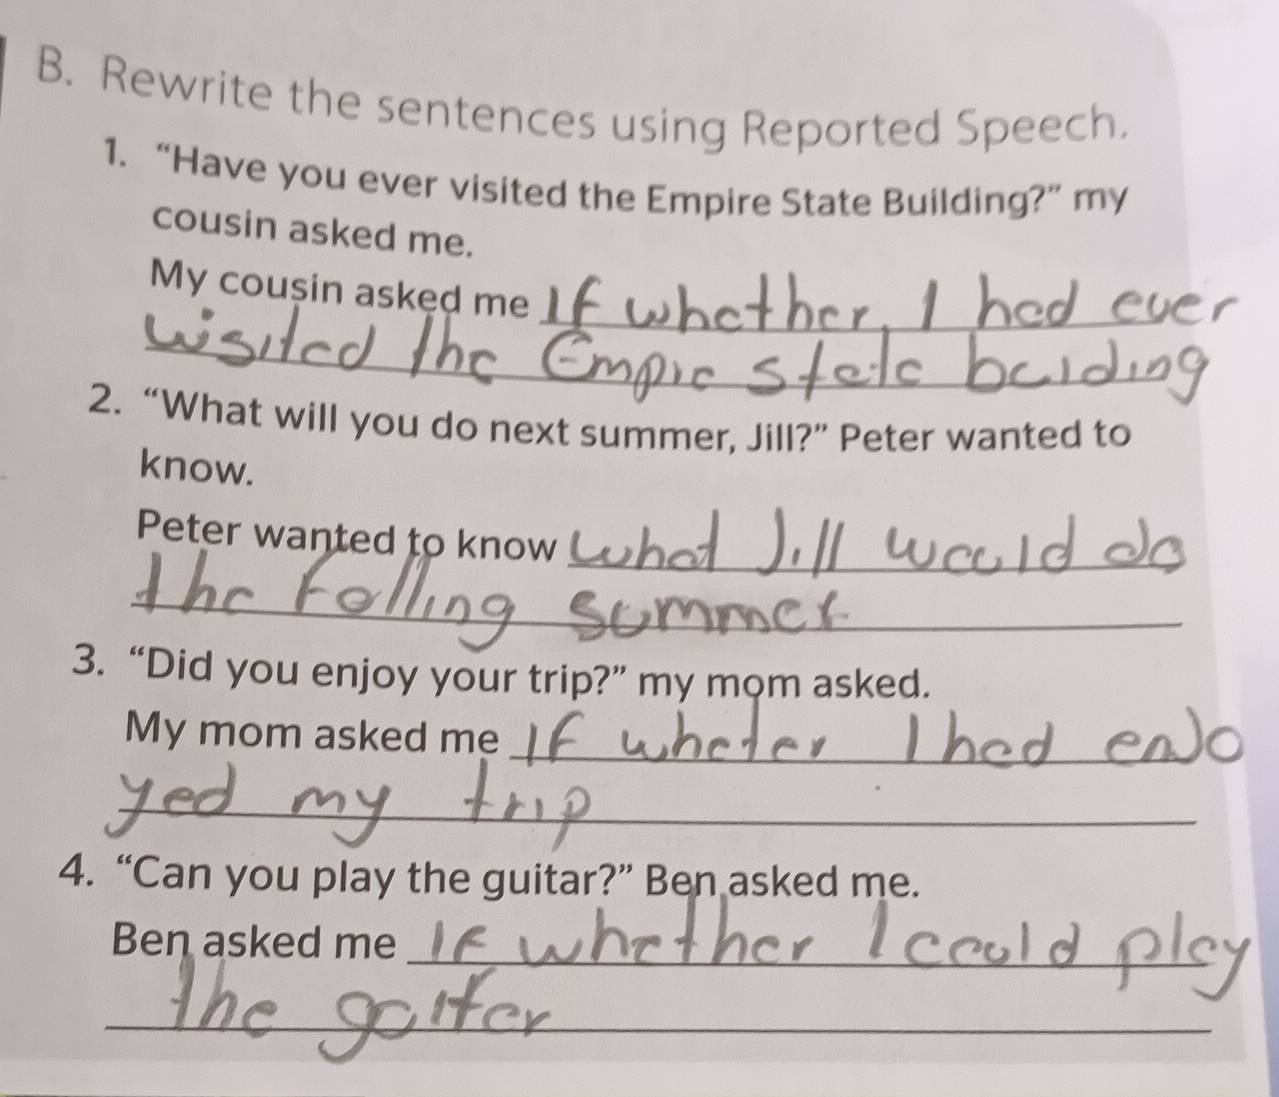 B. Rewrite the sentences using Reported Speech.
1. “Have you ever visited the Empire State Building?” my
cousin asked me.
My cousin asked me If whether, I had ever
wisited the Empie state bciding
2. “What will you do next summer, Jill?” Peter wanted to
know.
Peter wanted to know what Jill would do
the folling summer
3. “Did you enjoy your trip?” my mom asked.
My mom asked me If wheter I had enJo
yed my trip
4. “Can you play the guitar?” Ben asked me.
Ben asked me If whether I could play
the goiter